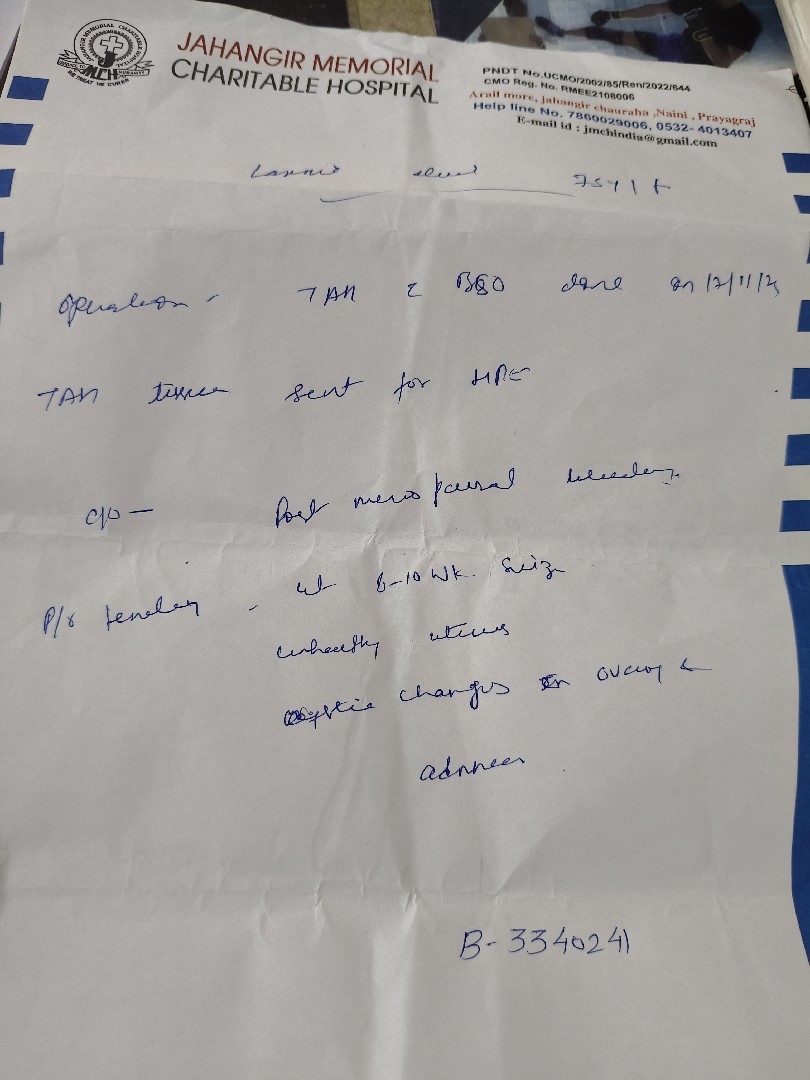 JAHANGIR MEMORIAL
CHARITABLE HOSPITAL
JMCH
WE TREAT HE CURES
PNDT No.UCMO/2002/85/Ren/2022/644
CMO Reg. No. RMEE2108006
Arail more, jahangir chauraha ,Naini , Prayagraj
Help line No. 7860029006, 0532- 4013407
E-mail id : jmchindia@gmail.com
75y | F
Operation - TAH c BSO done on 12/11/25
TAH tissue sent for HPE
c/o — Post menopausal bleeding
ut 8-10 Wk. Seiz
unhealthy uterus
cystic changes in ovary &
adnexa
B-3340241